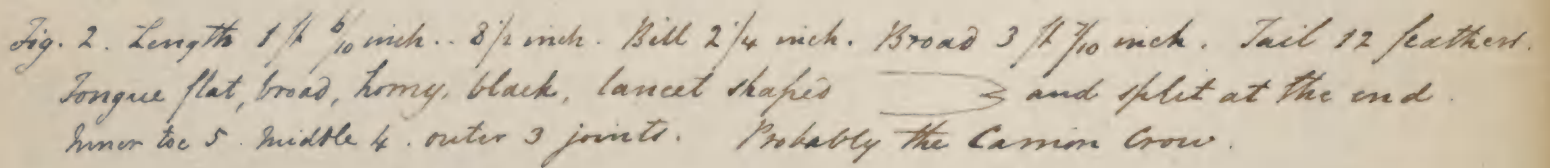 Fig. 2. Length 1 ft 6/10 inch.. 8 1/2 inch. Bill 2 1/4 inch. Broad 3 ft 7/10 inch. Tail 12 feathers.
Tongue flat, broad, horny, black, lancet shaped and split at the end.
Inner toe 5. Middle 4. outer 3 joints. Probably the Carrion Crow.